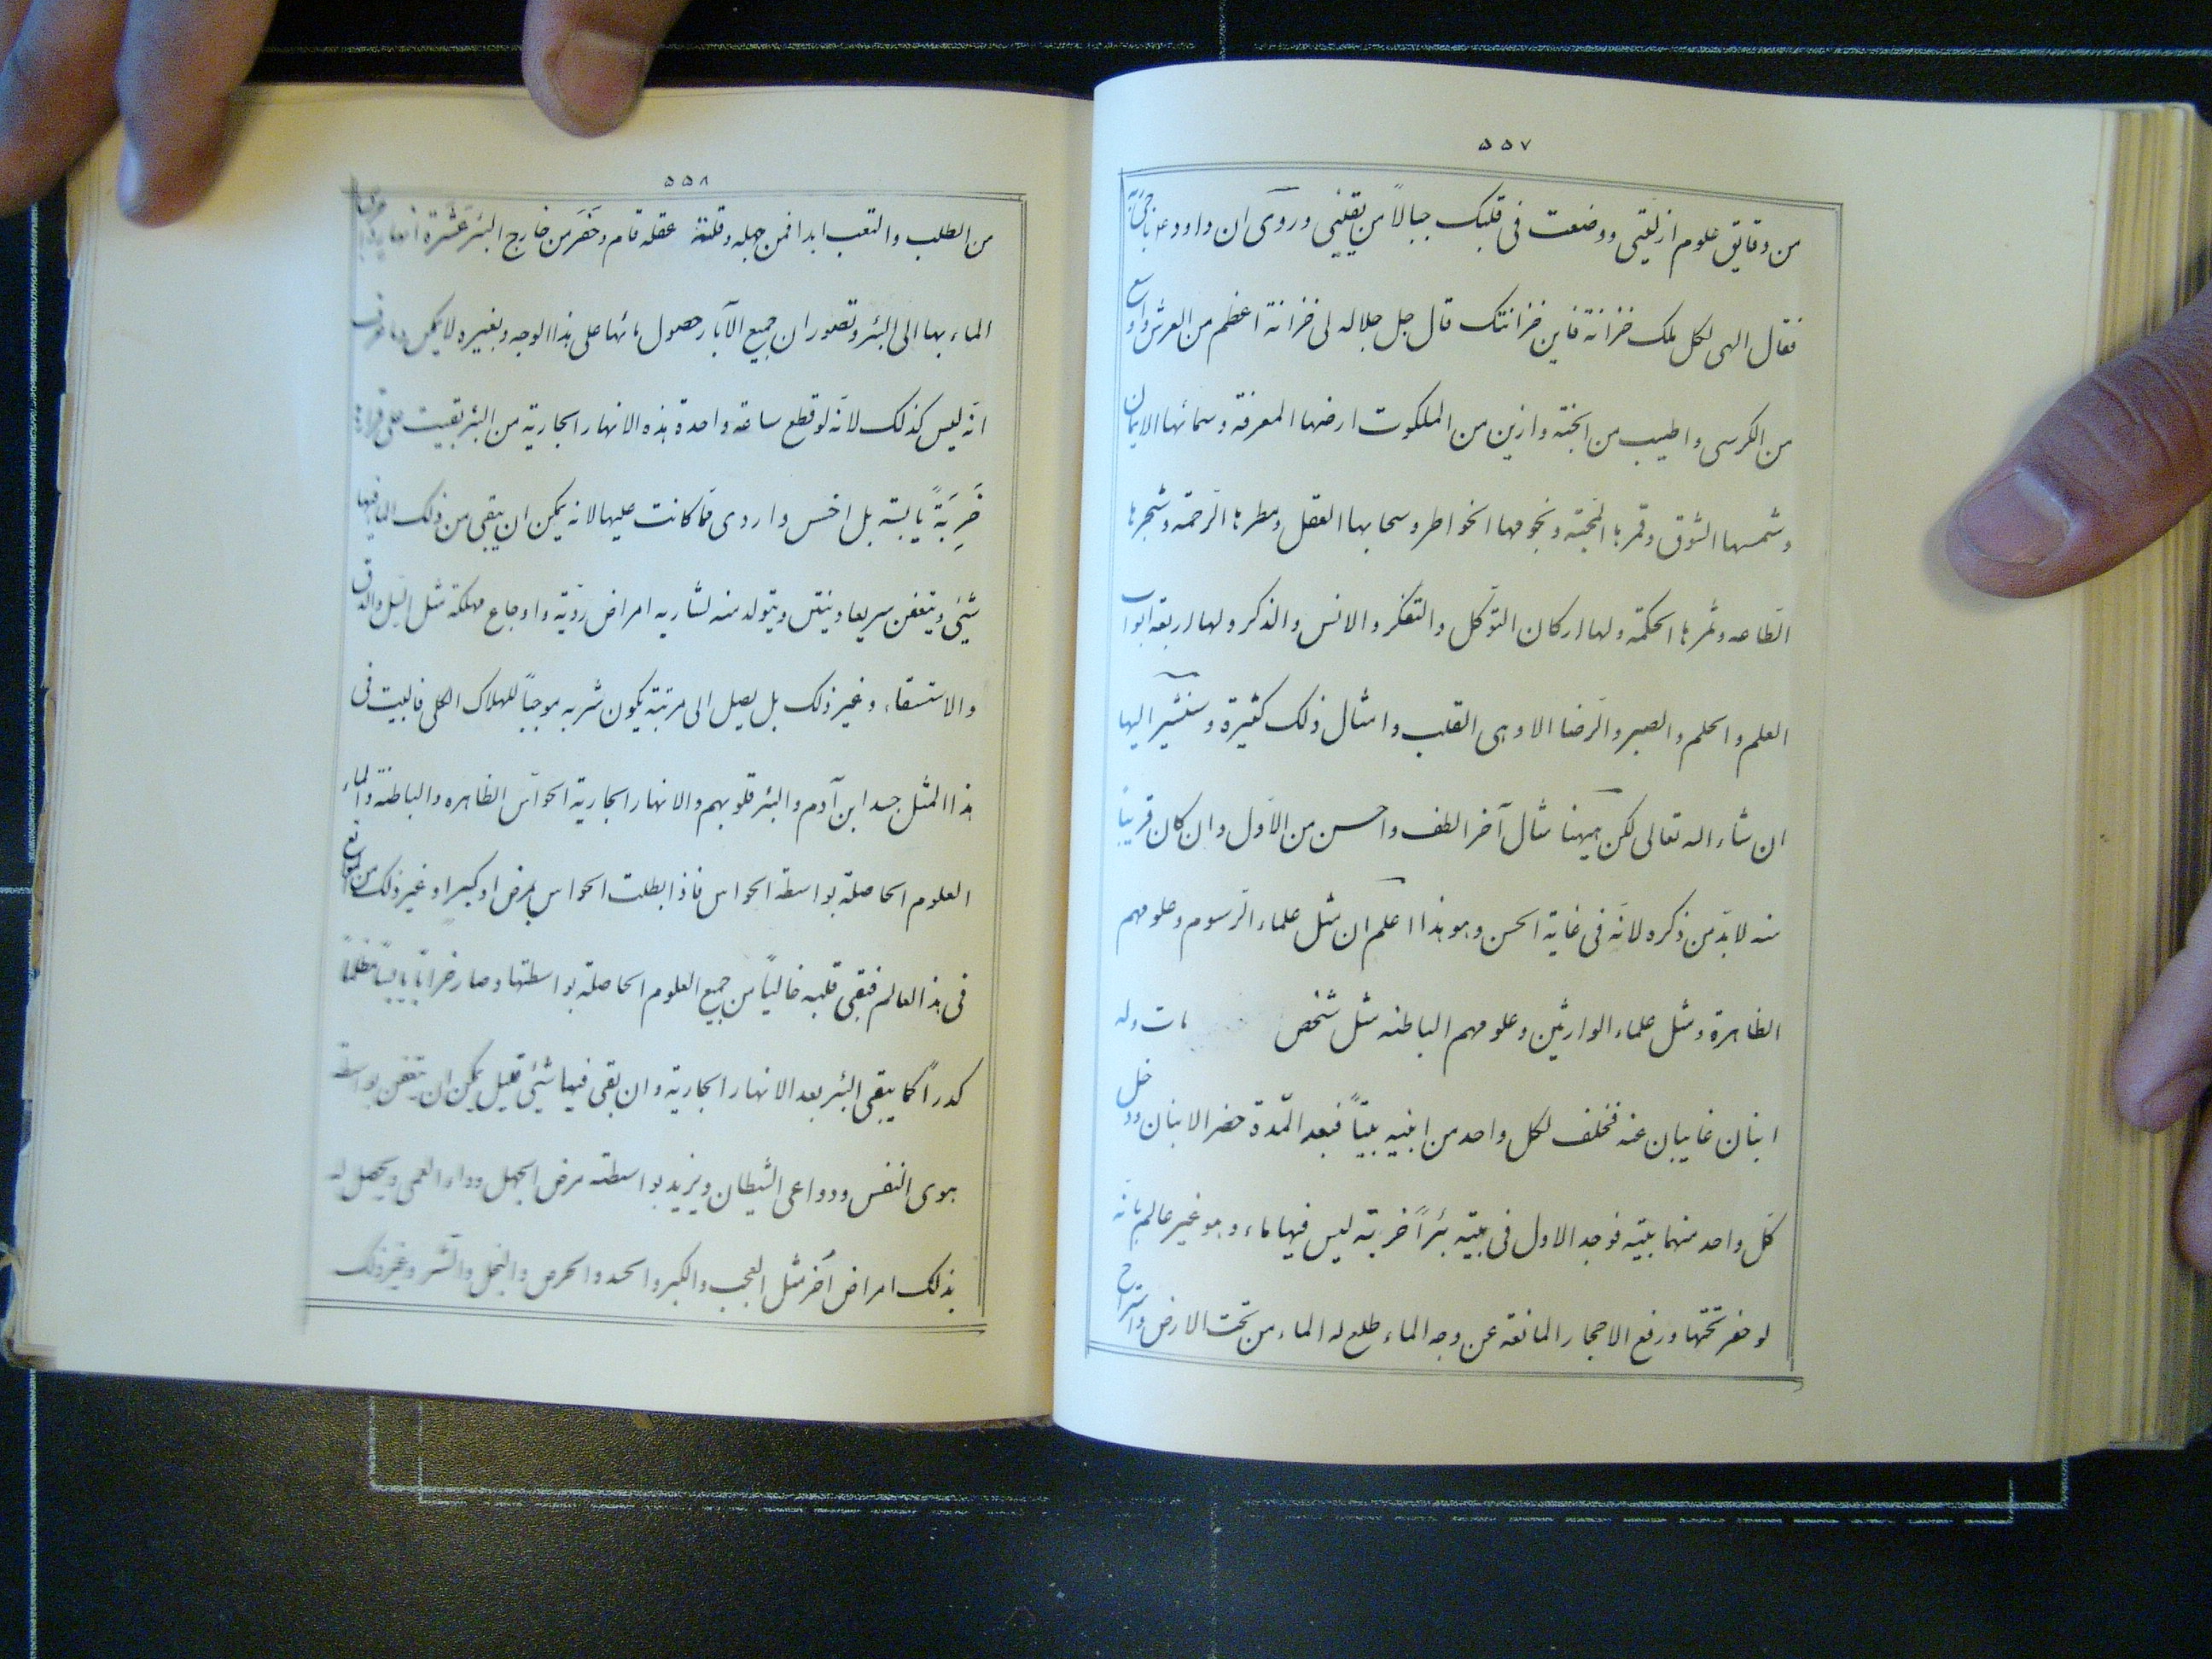 ۵۵۷
من دقايق علوم ازليتى ووضعت فى قلبك جبالاً من يقينى وروى ان داود ع ناجى ربه
فقال الهى لكل ملك خزانة فاين خزانتك قال جل جلاله لى خزانة اعظم من العرش واوسع
من الكرسى واطيب من الجنة وازين من الملكوت ارضها المعرفة وسمائها الايمان
وشمسها الشوق وقمرها المحبة ونجومها الخواطر وسحابها العقل ومطرها الرّحمة وشجرها
الطّاعه وثمرها الحكمة ولها اركان التوكّل والتفكر والانس والذكر ولها اربعة ابواب
العلم والحلم والصبر والرّضا الا وهى القلب وامثال ذلك كثيرة وسنشير اليها
ان شاء اله تعالى لكن هيهنا مثال آخر الطف واحسن من الاوّل وان كان قريباً
منه لابدّ من ذكره لانّه فى غاية الحسن وهو هذا اعلم ان مثل علماء الرّسوم وعلومهم
الظاهرة ومثل علماء الوارثين وعلومهم الباطنه مثل شخص مات وله
ابنان غايبان عنه فخلف لكل واحد من ابنيه بيتاً فبعد المّدة حضر الابنان ودخل
كلّ واحد منهما بيته فوجد الاول فى بيته بئراً خربة ليس فيها ماء وهو غير عالم بانّه
لو حفر تحتها ورفع الاحجار المانعه عن وجه الماء طلع له الماء من تحت الارض واستراح
۵۵۸
من الطلب والتعب ابدا فمن جهله وقلة عقله قام وحَفَر من خارج البئر عَشَرة انهار
الماء بها الى البئر وتصور ان جميع الآبار حصول مائها على هذا الوجه وبغيره لا يمكن وما عرف
انّه ليس كذلك لانّه لو قطع ساعة واحدة هذه الانهار الجارية من البئر بقيت على قرارها
خَرِبَةً يابسة بل اخس واردى مما كانت عليها لانه يمكن ان يبقى من ذلك الماء فيها
شيئى ويتعفن سريعا وينتن ويتولد منه لشاربه امراض رديّة واوجاع مهلكة مثل السّل والدق
والاستسقاء وغير ذلك بل يصل الى مرتبة يكون شربه موجباً للهلاك الكلى فالبيت فى
هذا المثل جسد ابن آدم والبئر قلوبهم والانهار الجارية الحواسّ الظاهره والباطنة والماء
العلوم الحاصلة بواسطة الحواس فاذا بطلت الحواس بمرض او كبر او غير ذلك من الموانع
فى هذا العالم فبقى قلبه خالياً من جميع العلوم الحاصلة بواسطتها وصار خراباً يابساً مظلماً
كدراً كما يبقى البئر بعد الانهار الجارية وان بقى فيها شيئى قليل يمكن ان يتعفن بواسطة
هوى النفس ودواعى الشيطان ويزيد بواسطته مرض الجهل وداء العمى ويحصل له
بذلك امراض اُخر مثل العجب والكبر والحسد والحرص والبخل والشّر وغير ذلك